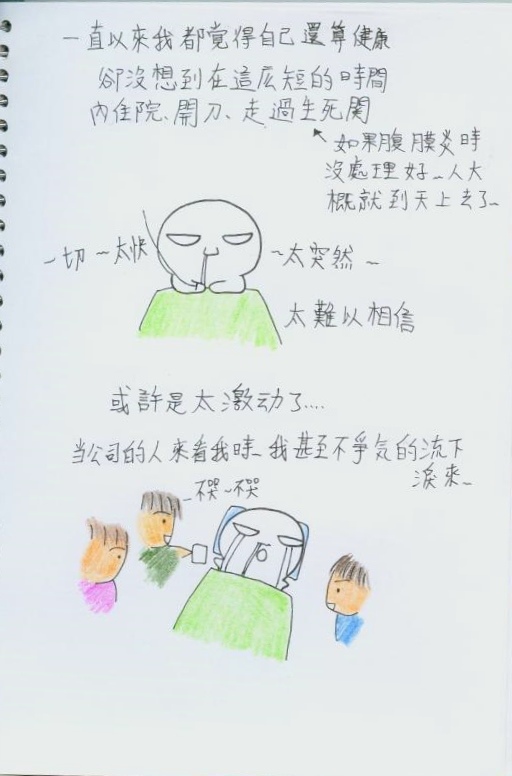 一直以來我都覺得自己還算健康
卻沒想到在這広短的時間
內住院、開刀、走過生死関
如果腹膜炎時
沒處理好~人大
概就到天上去了~
~切~太快
~太突然~
太難以相信
或許是太激动了....
当公司的人來看我時~我甚至不爭気的流下
淚來~
~不哭~不哭